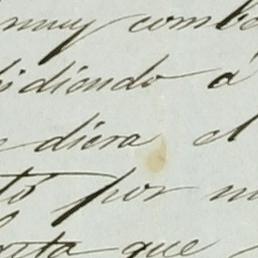 muy comb
idiendo á
diera el
to por m
arta que